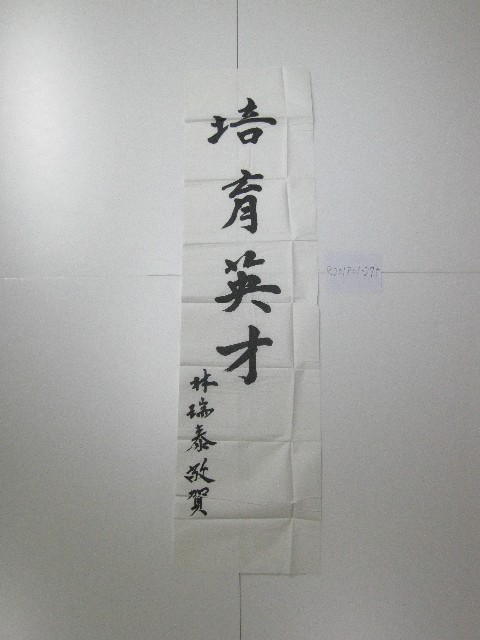 培育英才
林瑞泰敬賀